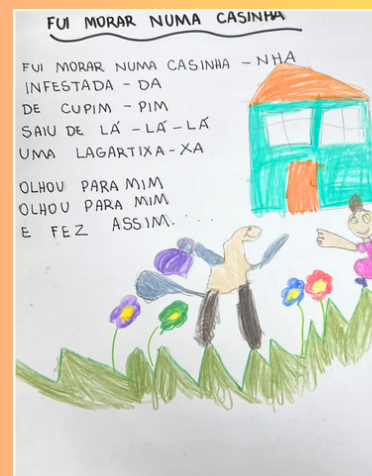 FUI MORAR NUMA CASINHA
FUI MORAR NUMA CASINHA - NHA
INFESTADA - DA
DE CUPIM - PIM
SAIU DE LÁ - LÁ - LÁ
UMA LAGARTIXA - XA
OLHOU PARA MIM
OLHOU PARA MIM
E FEZ ASSIM....